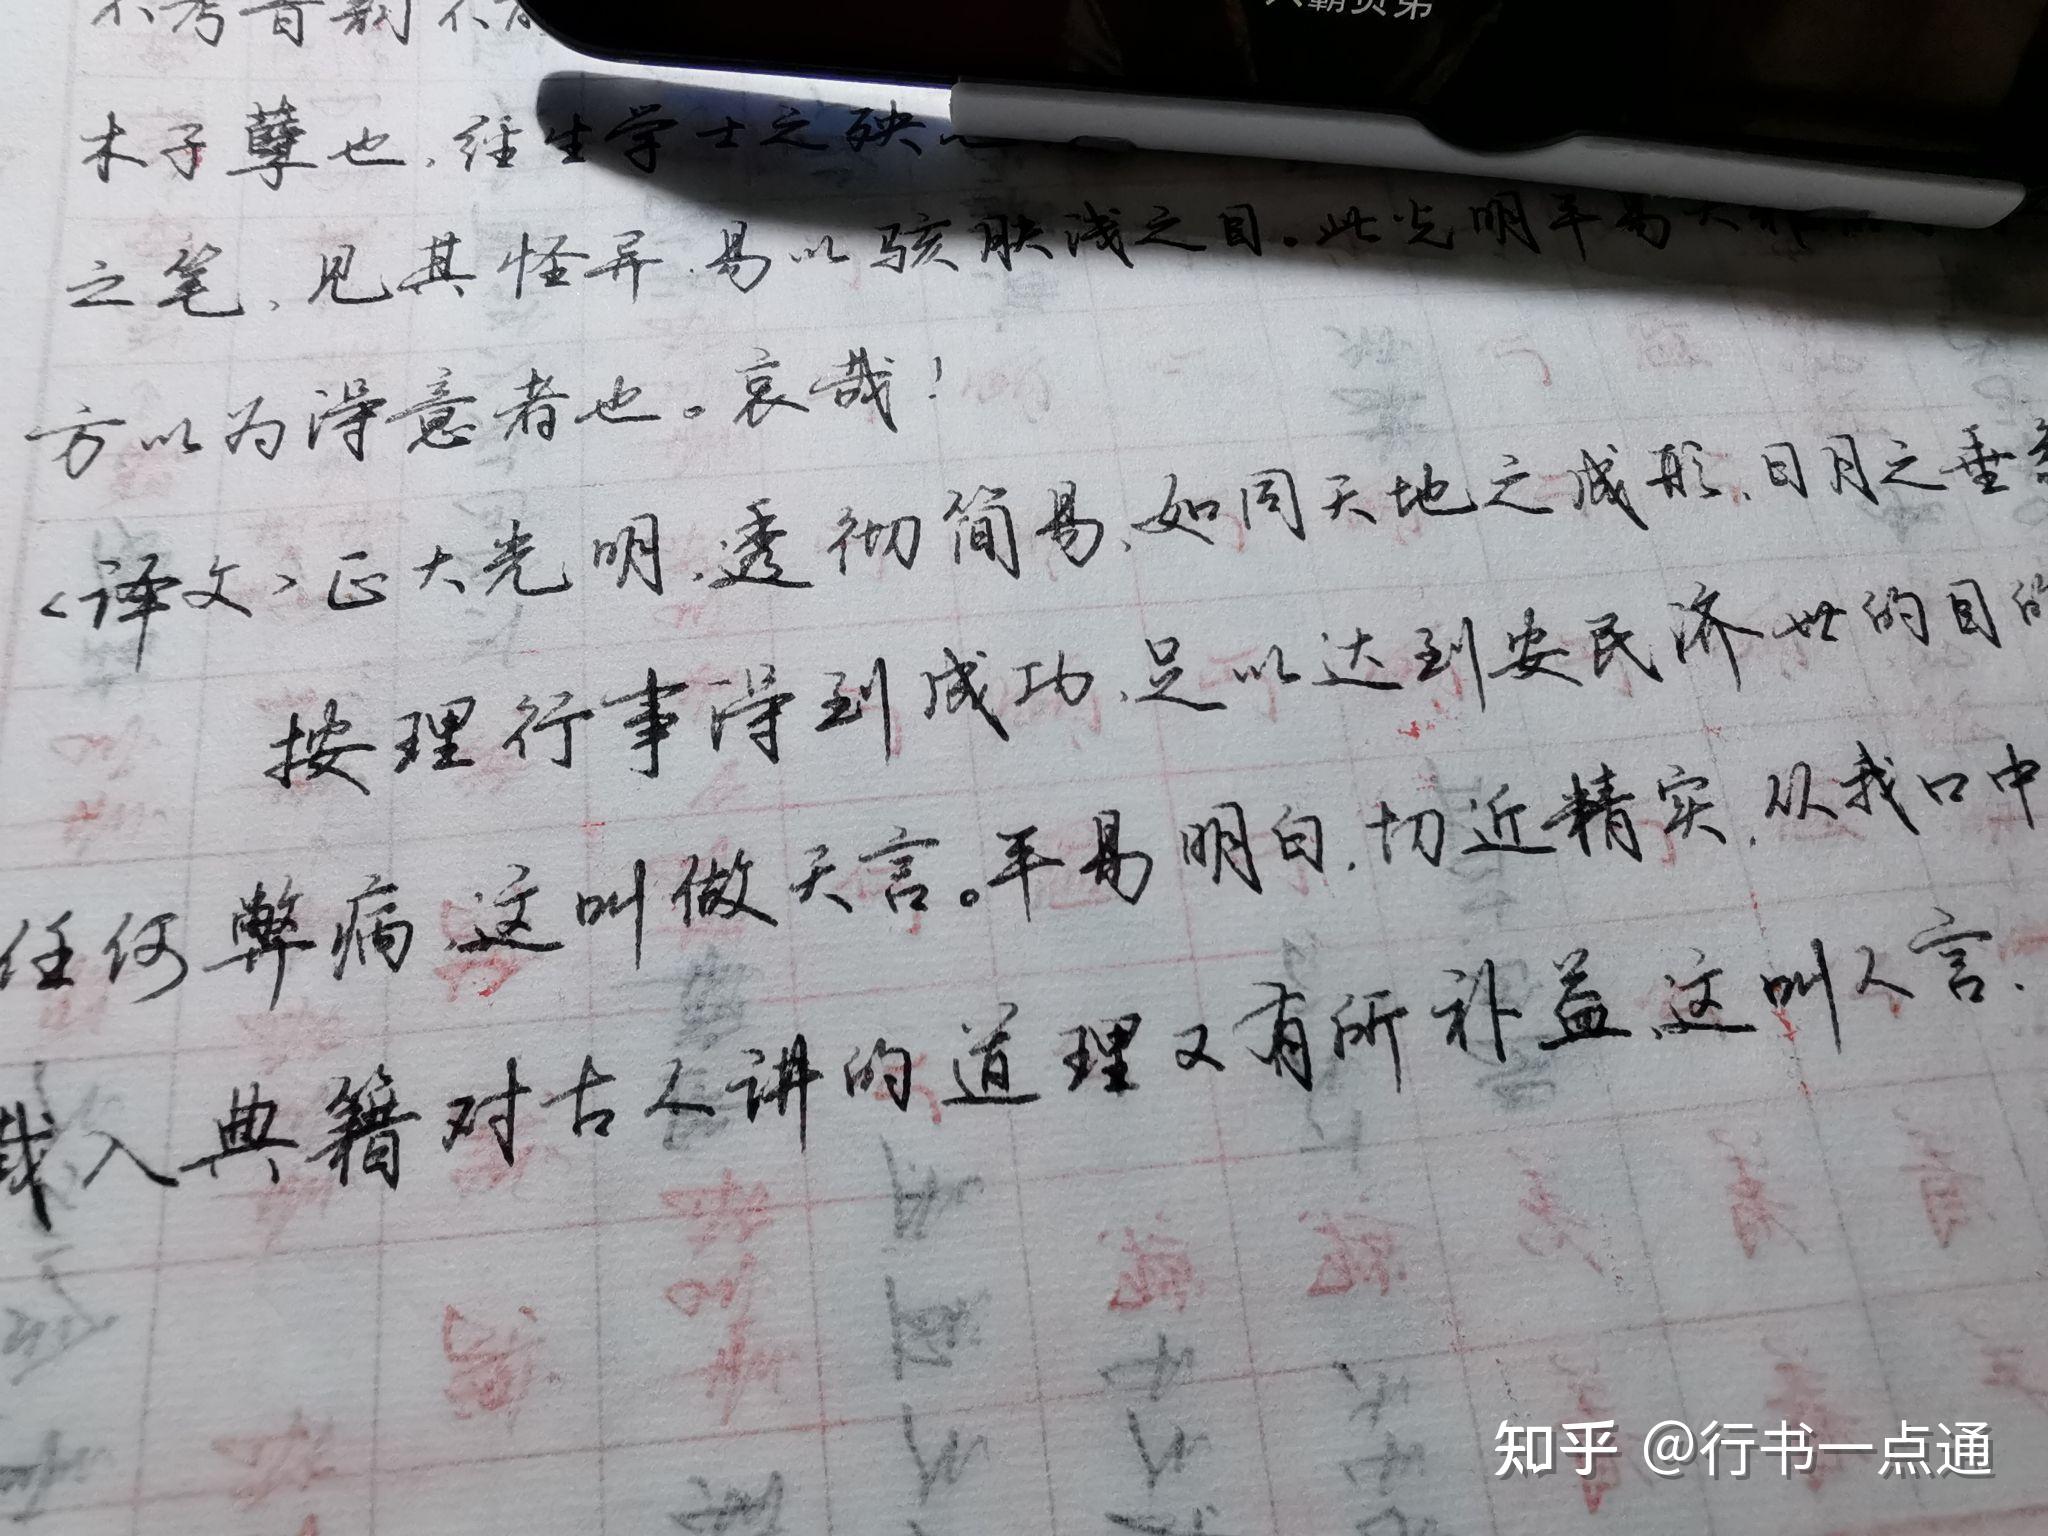 不考音韵不
木子孽也，经生学士之殃也
之笔，见其怪异，易以骇肤浅之目。此光明平易大雅
方以为得意者也。哀哉！
<译文>正大光明，透彻简易，如同天地之成形，日月之垂象
按理行事得到成功，足以达到安民济世的目的
任何弊病，这叫做天言。平易明白，切近精实，从我口中
载入典籍对古人讲的道理又有所补益，这叫人言，
知乎 @行书一点通